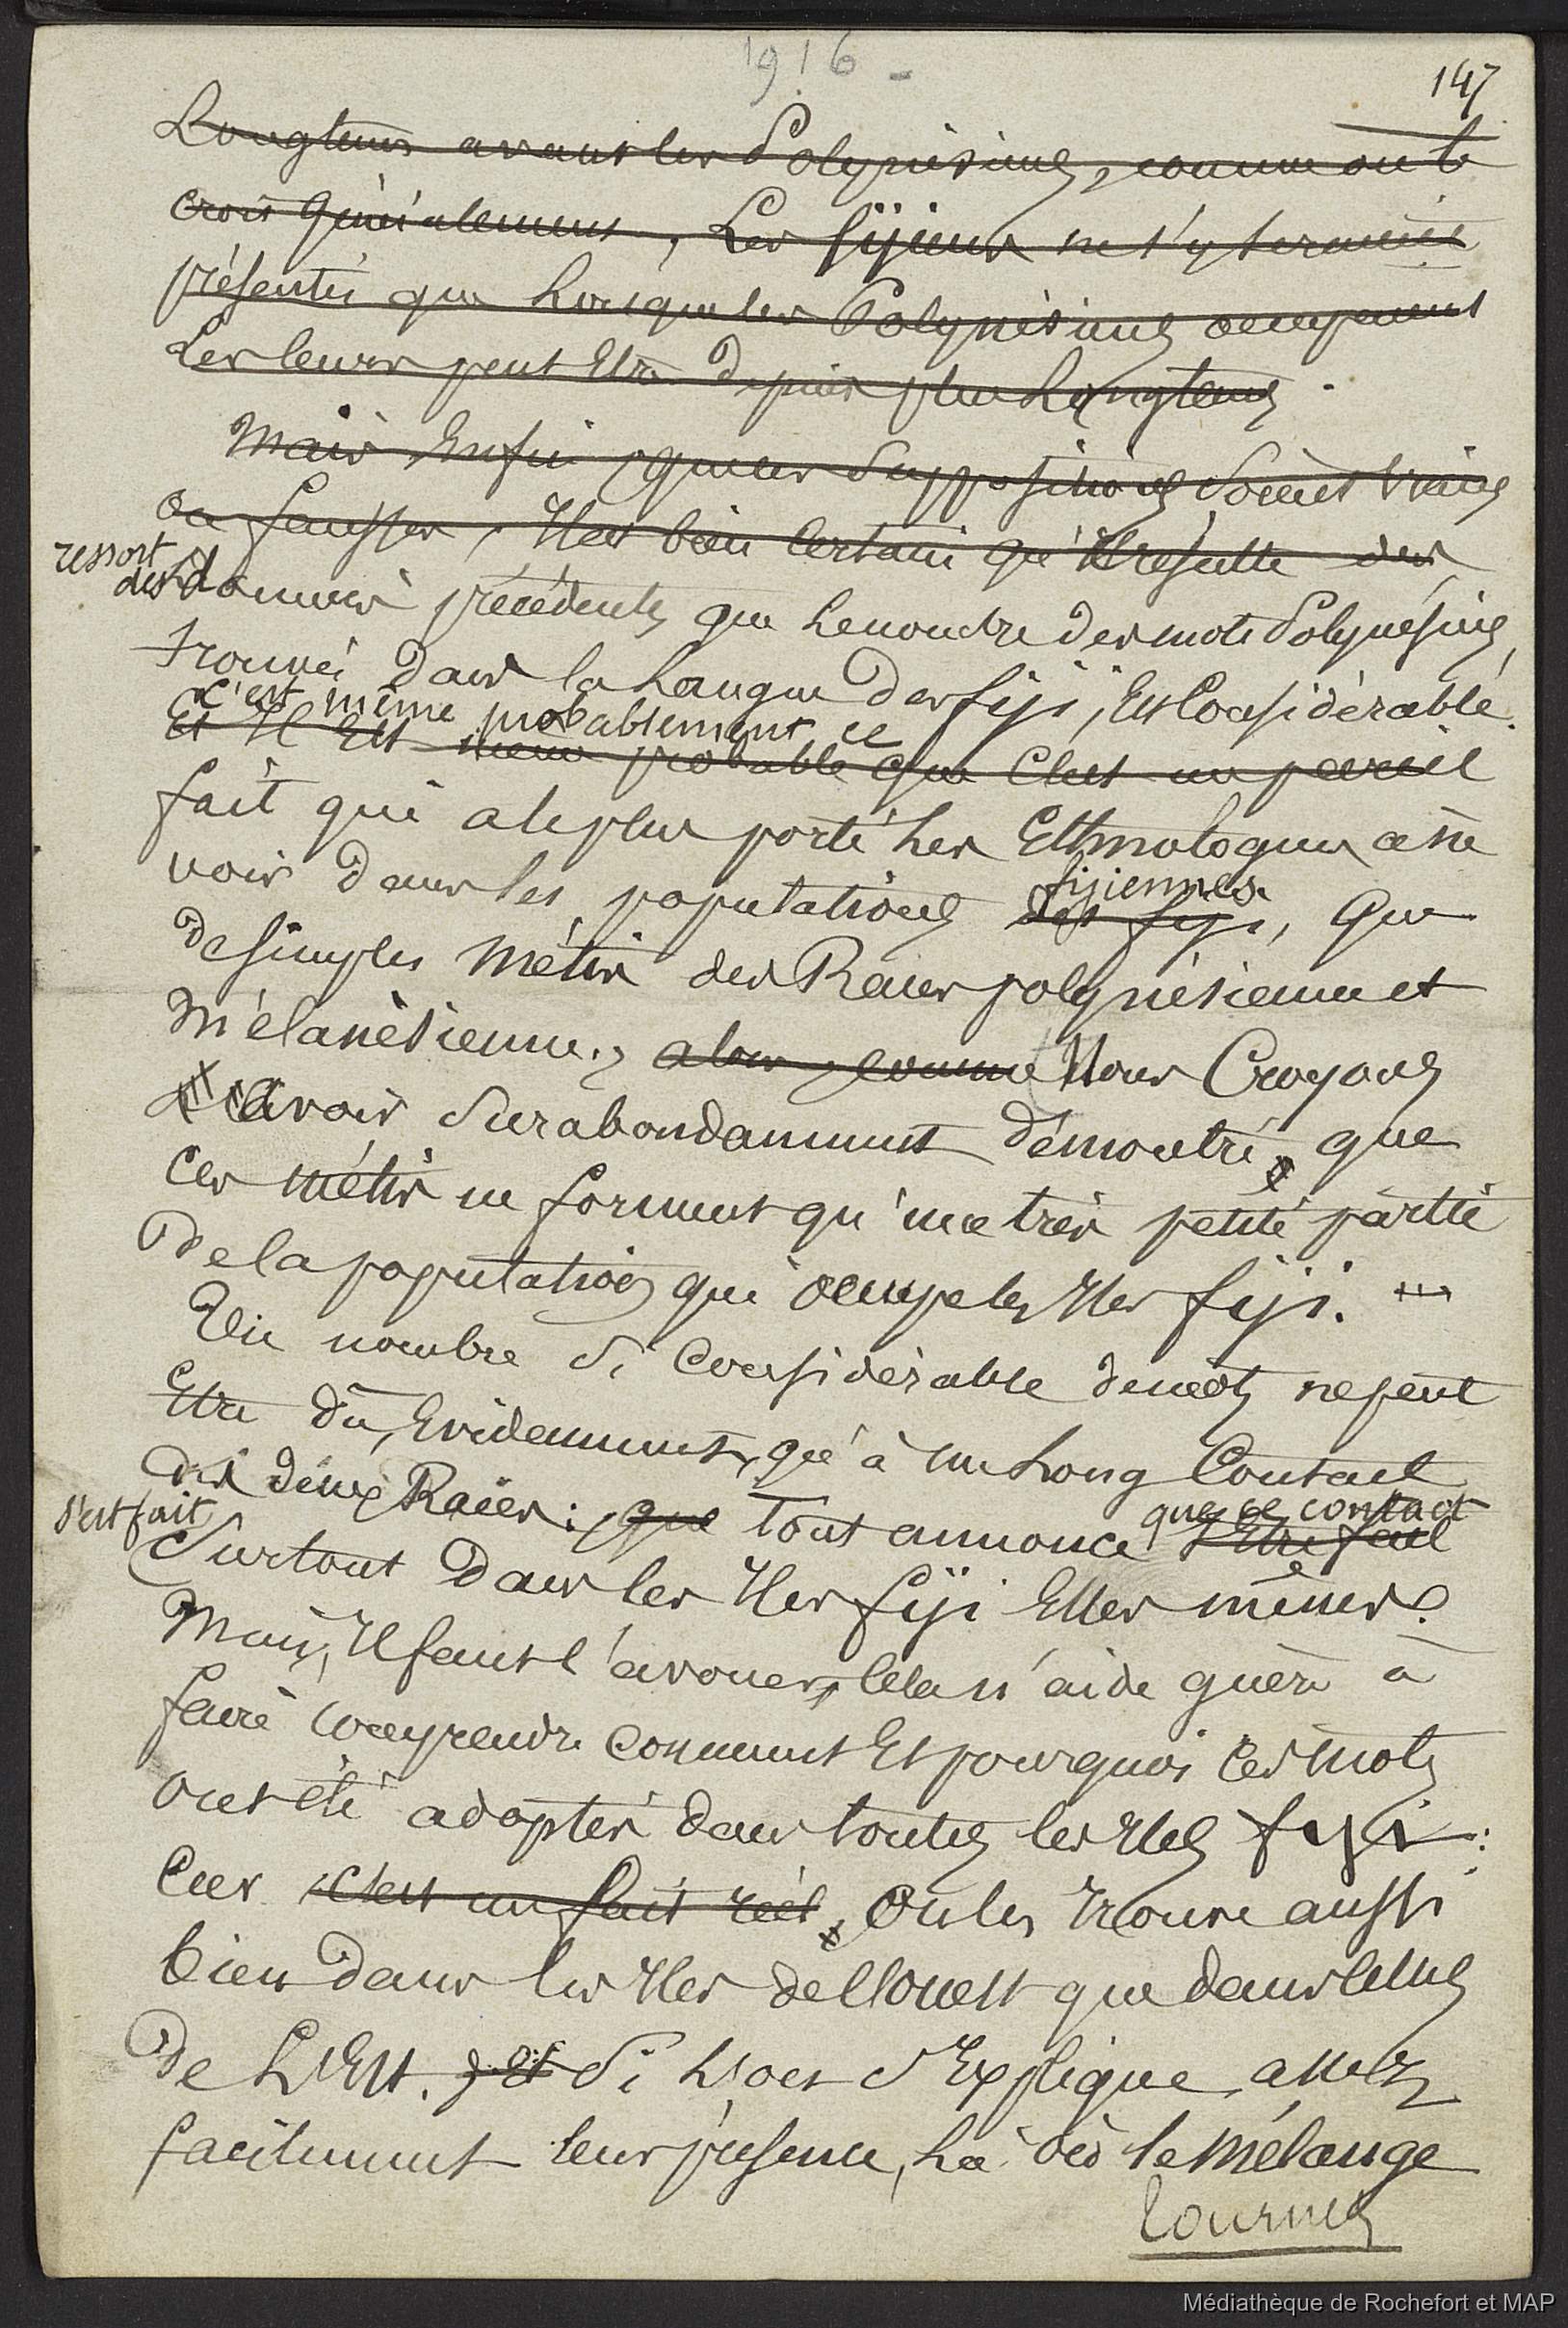 1916 -
147
Longtems avant les Polynésiens, comme on le
croit généralement, Les fijiens ne s'y seraient
présentés que Lorsque les Polynésiens occupaient
Les leurs peut Etre depuis plus Longtems.
Mais Enfin, que ces Suppositions Soient vraies
ou fausses, Il est bien Certain qu'Il résulte des
ressort
des données précédentes que Le nombre des mots Polynésiens,
trouvés Dans la Langue des fiji, Est Considérable.
c'est même probablement ce
Et Il Est même probable que C'est un pareil
fait qui a le plus porté Les Ethnologues à ne
fijiennes
voir Dans les populations des fiji, que
de simples Métis des Races polynésienne et
Mélanésienne., alors, comme Nous Croyons
l'avoir Surabondamment démontré, que
Ces métis ne forment qu'une très petite partie
De la population qui occupe les Iles fiji.
Un nombre Si Considérable de mots ne peut
Etre dû, Evidemment, qu'à un Long Contact
des deux Races : que tout annonce s'Etre fait
que ce contact
s'est fait
Surtout Dans les Iles fiji Elles mêmes.
Mais, Il faut l'avouer, Cela n'aide guère à
faire Comprendre Comment Et pourquoi Ces mots
ont été adoptés dans toutes les Iles fiji :
Car c'est un fait réel, On les trouve aussi
bien Dans les Iles de l'Ouest que dans celles
De L'Est. ; Et Si L'on S'Explique assez
facilement leur présence, Là où le Mélange
tournez
Médiathèque de Rochefort et MAP